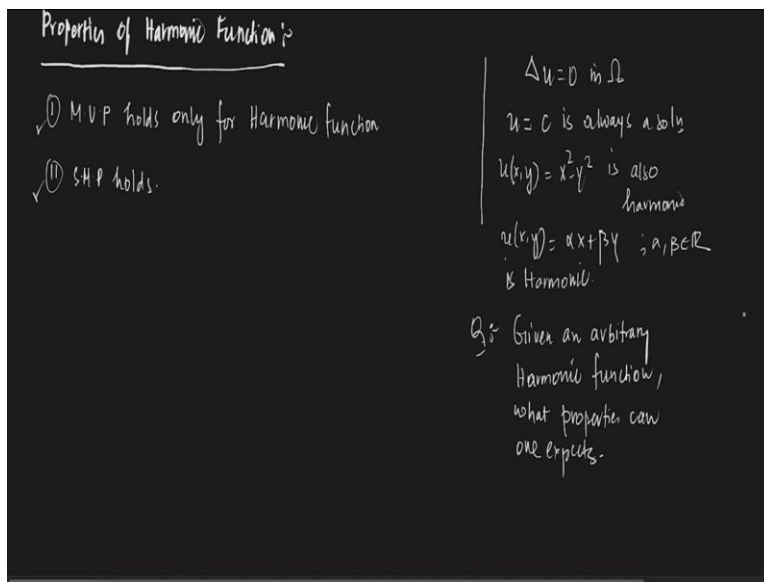 Properties of Harmonic Function :-
(I) M.V.P holds only for Harmonic function
(II) S.M.P holds.
Δu=0 in Ω
u = c is always a soln
u(x,y) = x²-y² is also
harmonic
u(x,y) = αx+βy ; α,β∈ℝ
is Harmonic.
Q:- Given an arbitrary
Harmonic function,
what properties can
one expects.